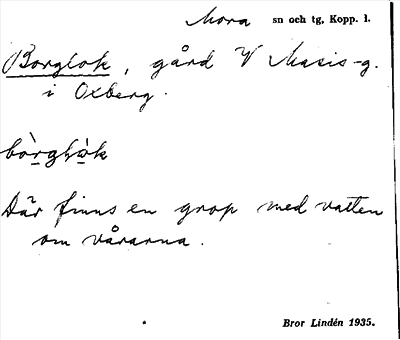 Mora sn och tg, Kopp. l.
Borghok, gård V Masis-g.
i Oxberg.
bòrghò̱k
Där finns en grop med vatten
om vårarna.
Bror Lindén 1935.